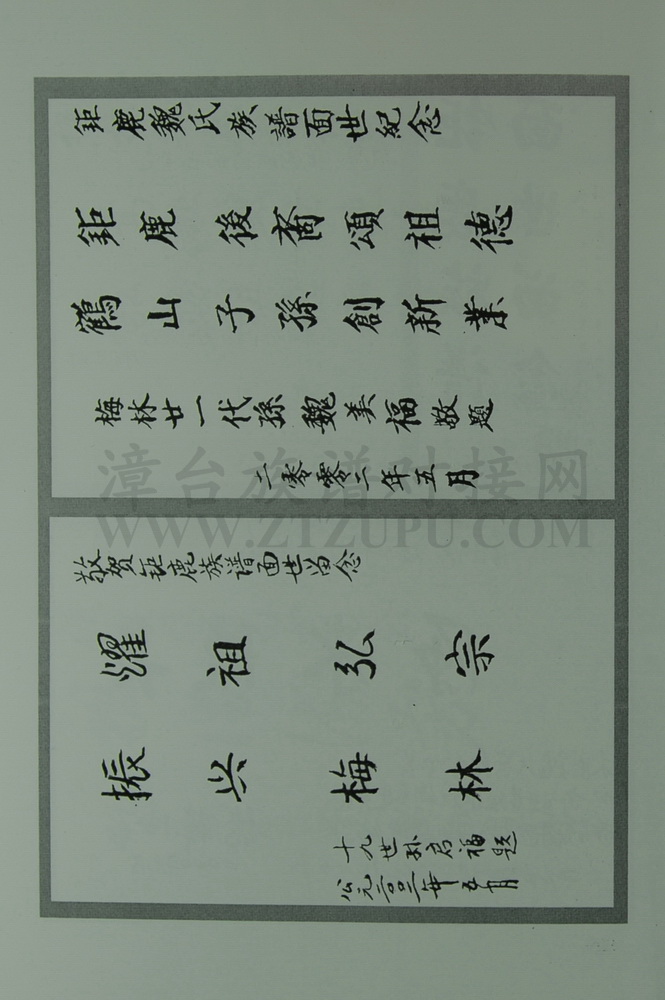 鉅鹿魏氏族譜面世紀念
鉅鹿後裔頌祖德
鶴山子孫創新業
梅林廿一代孫魏美福敬題
二零零二年五月
漳台族谱对接网
WWW.ZTZUPU.COM
敬贺钜鹿族谱面世留念
濯祖弘宗
振兴梅林
十九世孙君福题
公元二〇〇二年五月